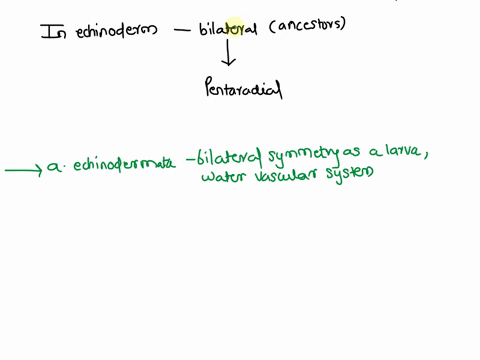 In echinoderm — bilateral (ancestors)
↓
Pentaradial
→ a. echinodermata - bilateral symmetry as a larva,
water vascular system